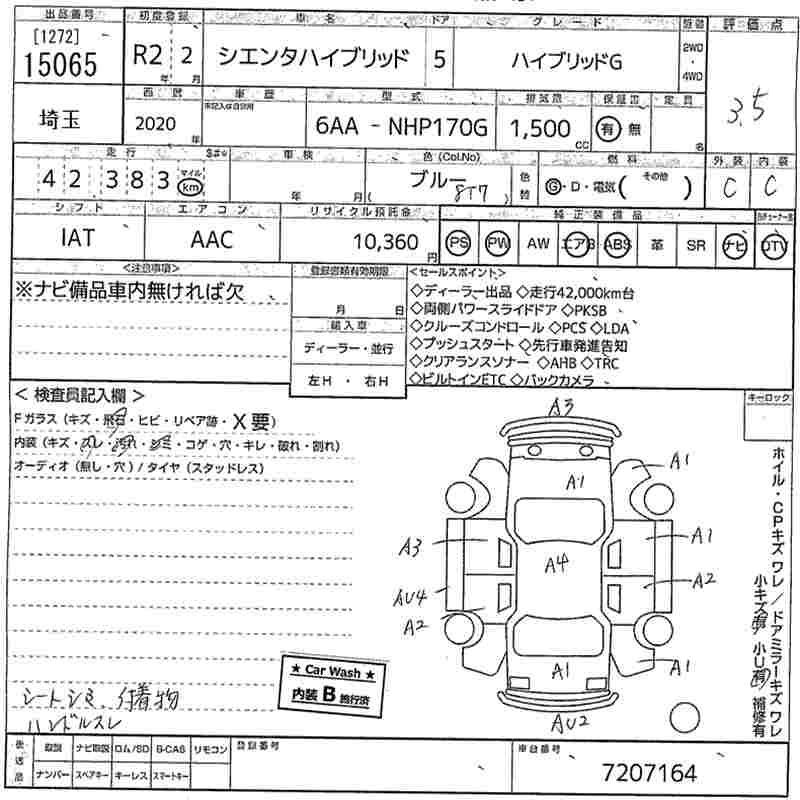 出品番号 初度登録 車名 ドア グレード 駆動 評価点
[1272]
15065 R2 2 シエンタハイブリッド 5 ハイブリッドG 2WD・4WD 3.5
年 月
西暦 車歴 型式 排気量 保証書 定員
※記入は自家用外
埼玉 2020 年 6AA - NHP170G 1,500 CC 有 無 名
走行 車検 色(Col.No) 燃料 外装 内装
42,383 マイル km 年 月 ブルー ( 8T7 ) 色替 G・D・電気( その他 ) C C
シフト エアコン リサイクル預託金 純正装備品
IAT AAC 10,360 円 PS PW AW エアB ABS 革 SR ナビ DTV
<注意事項> 登録書類有効期限 <セールスポイント>
※ナビ備品車内無ければ欠
月 日
輸入車
ディーラー・並行
左H ・ 右H
◇ディーラー出品 ◇走行42,000km台
◇両側パワースライドドア ◇PKSB
◇クルーズコントロール ◇PCS ◇LDA
◇プッシュスタート ◇先行車発進告知
◇クリアランスソナー ◇AHB ◇TRC
◇ビルトインETC ◇バックカメラ
キーロック
< 検査員記入欄 >
Fガラス (キズ・飛石・ヒビ・リペア跡・X要)
内装 (キズ・スレ・汚れ・シミ・コゲ・穴・キレ・破れ・割れ)
オーディオ (無し・穴) / タイヤ (スタッドレス)
A3
A1
A1
A3
A1
A4
AU4
A2
A2
A1
A1
AU2
ホイル・CPキズ ワレ / ドアミラーキズ ワレ
小キズ有 小U有 補修有
★ Car Wash ★
内装 B 施行済
シートシミ、付着物
ハンドルスレ
後送品 取説 ナビ取説 ロム/SD B-CAS リモコン 登録番号 車台番号
ナンバー スペアキー キーレス スマートキー 7207164